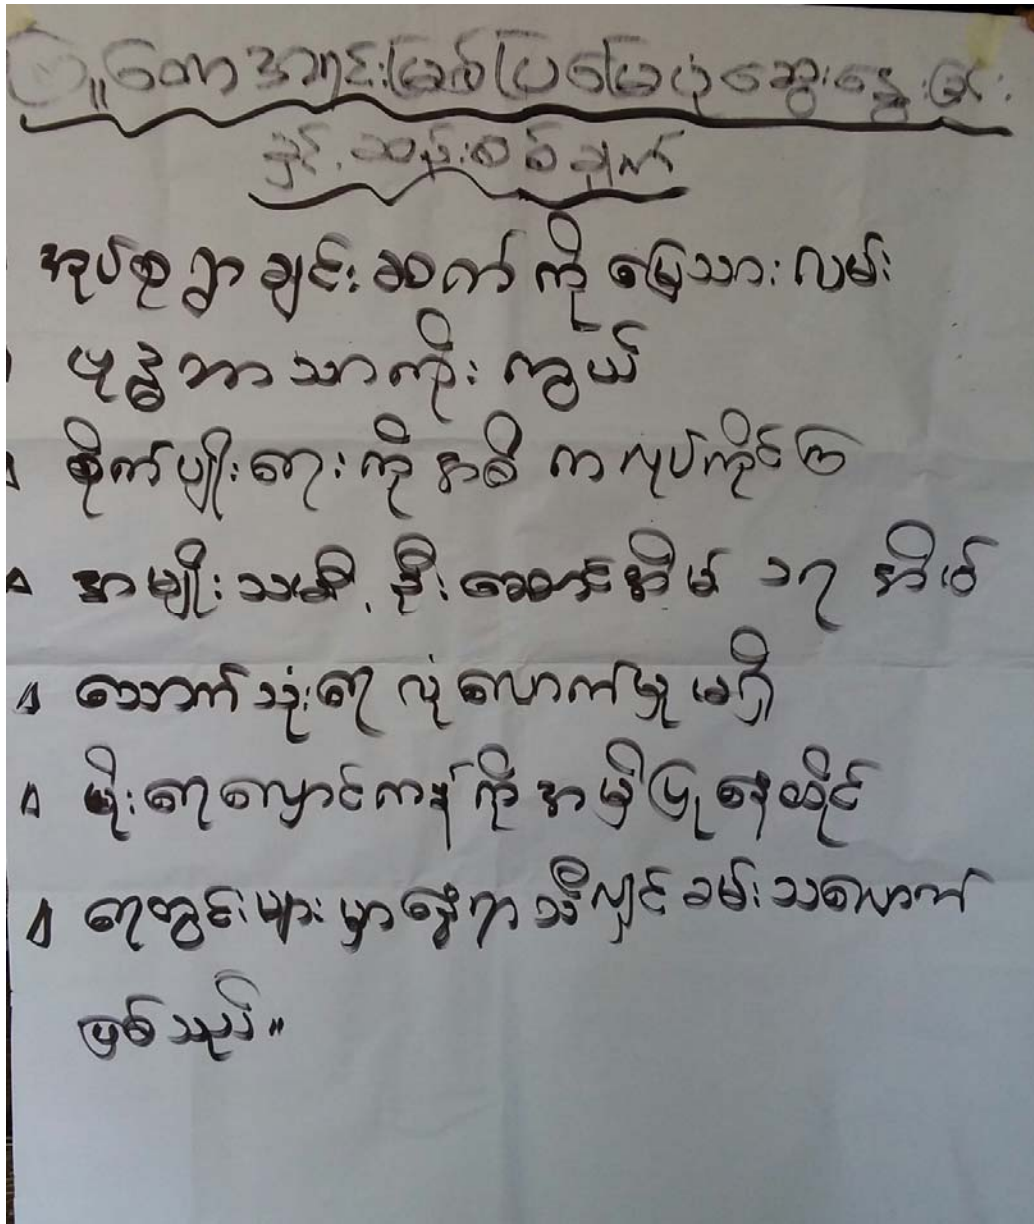 လူထောအရင်းအမြစ်ပြမြေပုံဆွေးနွေးခန်း
နှင့်ဆန်းစစ်ချက်
အုပ်စုရွာချင်းဆက်ကိုမြေသားလမ်း
ဗုဒ္ဓဘာသာကိုးကွယ်
စိုက်ပျိုးရေးကိုအဓိကလုပ်ကိုင်ကြ
အမျိုးသမီးဦးဆောင်အိမ် ၁၇ အိမ်
သောက်သုံးရေလုံလောက်မှုမရှိ
မိုးရေလှောင်ကန်ကိုအမှီပြုနေထိုင်
ရေတွင်းများမှာနွေရာသီလျှင်ခမ်းသလောက်
ဖြစ်သည်။